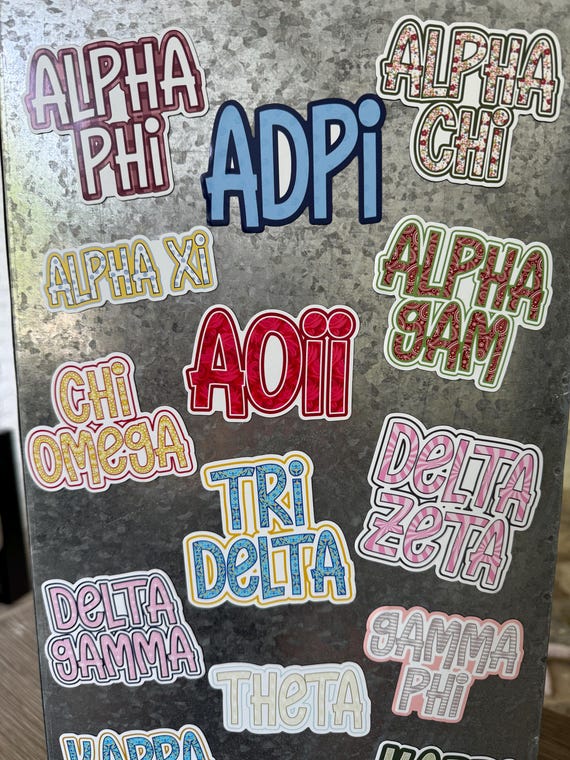 ALPHA
PHi
ADPi
ALPHA
CHi
ALPHA Xi
ALPHA
gAM
AOii
CHi
OMegA
TRi
DeLTA
DeLTA
ZeTA
DeLTA
gAMMA
gAMMA
PHi
THeTA
KAPPA